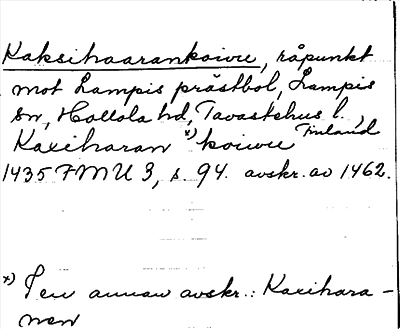 Kaksihaarankoivu, råpunkt
mot Lampis prästbol, Lampis
sn, Hollola hd, Tavastehus l.,
Finland
Kaxiharan x) koivu
1435 FMU 3, s. 94. avskr. av 1462.
x) I en annan avskr.: Kaxihara-
nen